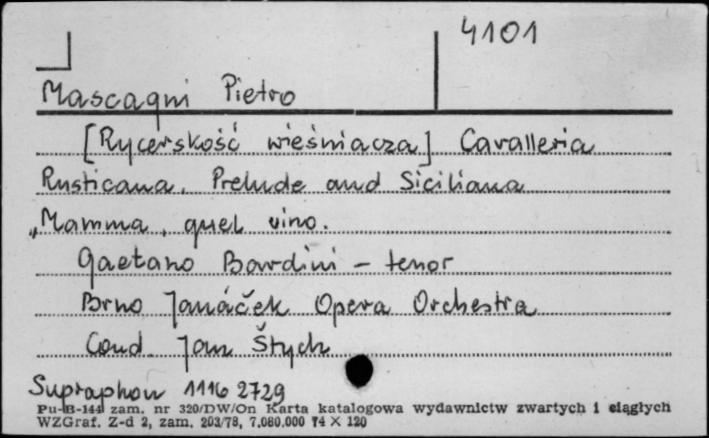 4101
Mascagni Pietro
[Rycerskość wieśniacza] Cavalleria
Rusticana. Prelude and Siciliana
„Mamma, quel vino.
Gaetano Bardini – tenor
Brno Janáček Opera Orchestra
Cond. Jan Štych
Supraphon 1116 2729
Pu-B-144 zam. nr 320/DW/On Karta katalogowa wydawnictw zwartych i ciągłych
WZGraf. Z-d 2, zam. 203/78, 7.080.000 74 × 120